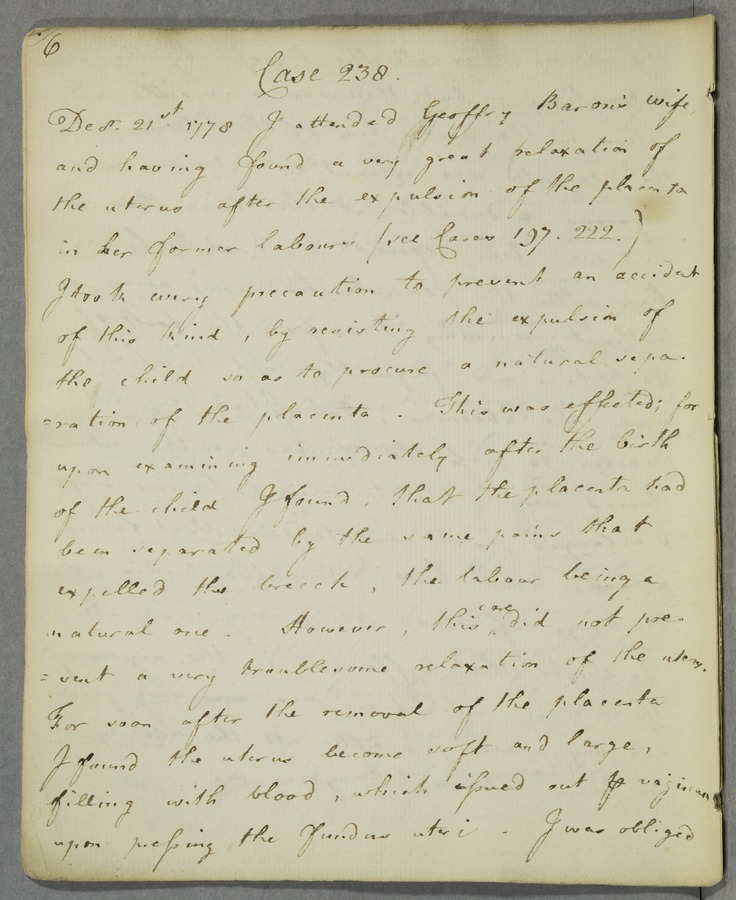 6
Case 238.
Decr. 21st 1778 I attended Geoffry Baron's wife,
and having found a very great relaxation of
the uterus after the expulsion of the placenta
in her former labours (see Cases 197. 222.)
I took every precaution to prevent an accident
of this kind, by resisting the expulsion of
the child so as to procure a natural sepa-
=ration of the placenta. This was effected; for
upon examining immediately after the birth
of the child I found, that the placenta had
been separated by the same pains that
expelled the breech, the labour being a
natural one. However, this care did not pre-
=vent a very troublesome relaxation of the uterus.
For soon after the removal of the placenta
I found the uterus become soft and large,
filling with blood, which issued out p vaginam
upon pressing the fundus uteri. I was obliged